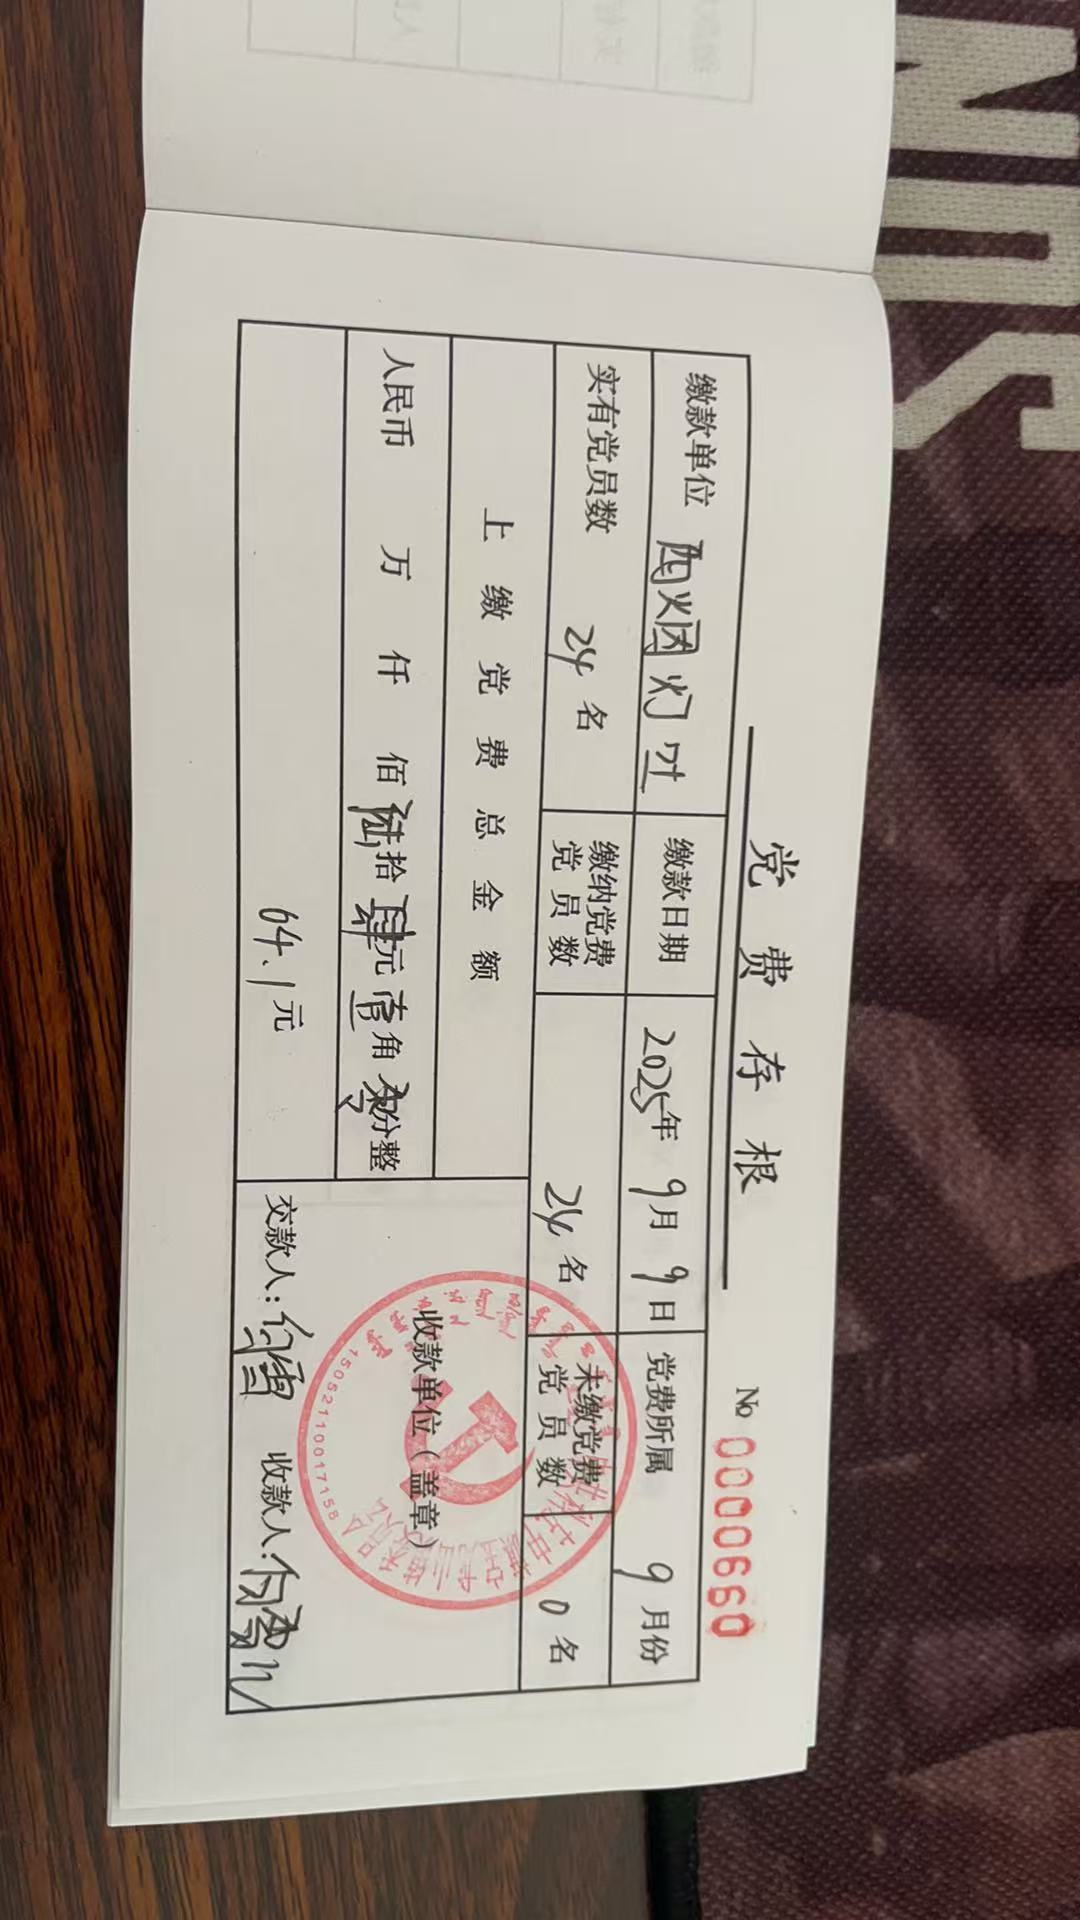 党费存根
No 0000660
缴款单位 西烟灯村 缴款日期 2025年9月9日 党费所属 9月份
实有党员数 24名 缴纳党费党员数 24名 未缴党费党员数 0名
上缴党费总金额
人民币 万 仟 佰 陆拾肆元壹角零分整
收款单位（盖章）
15052110017158
64.1元
交款人： 收款人：